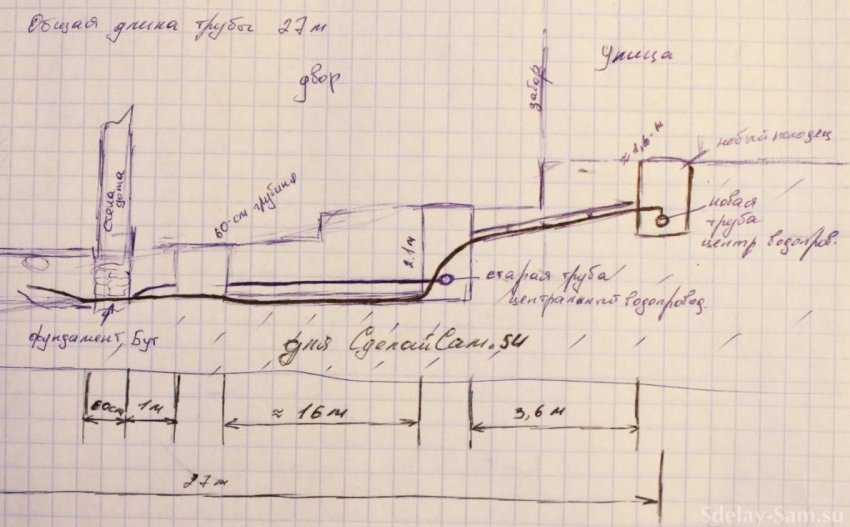 Общая длина трубы 27 м
двор
забор
Улица
≈ 1,6 м
новый колодец
стена
дома
60-см глубина
2.1 м
новая
труба
центр водопров.
старая труба
центральный водопровод.
фундамент, Бут
для СделайСам.su
60см
1м
≈ 16 м
3,6 м
27м
Sdelay-Sam.su